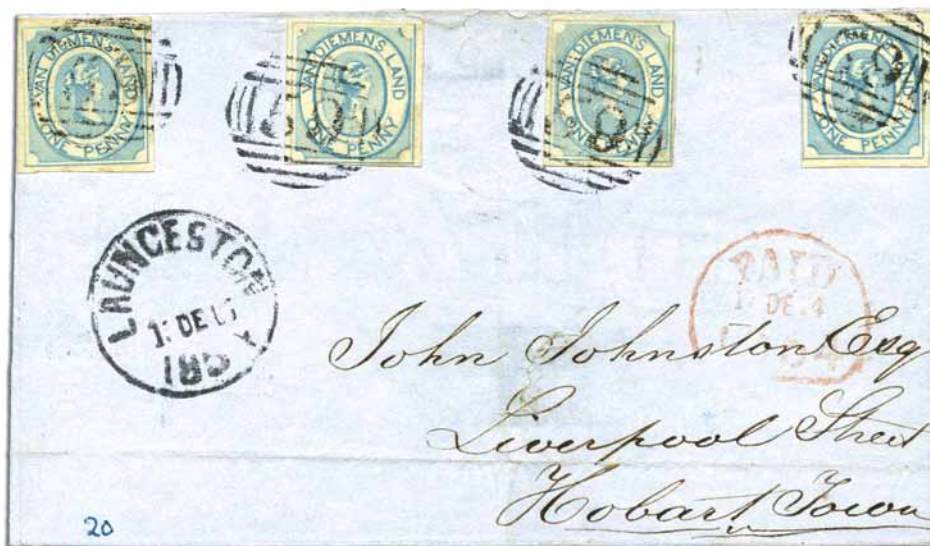 VAN DIEMEN'S LAND
ONE PENNY
VAN DIEMEN'S LAND
ONE PENNY
VAN DIEMEN'S LAND
ONE PENNY
VAN DIEMEN'S LAND
ONE PENNY
LAUNCESTON
DE
185
PAID
DE
John Johnston Esq
Liverpool Street
Hobart Town
20